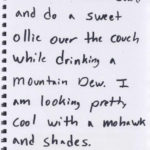 and do a sweet
ollie over the couch
while drinking a
mountain Dew. I
am looking pretty
cool with a mohawk
and shades.